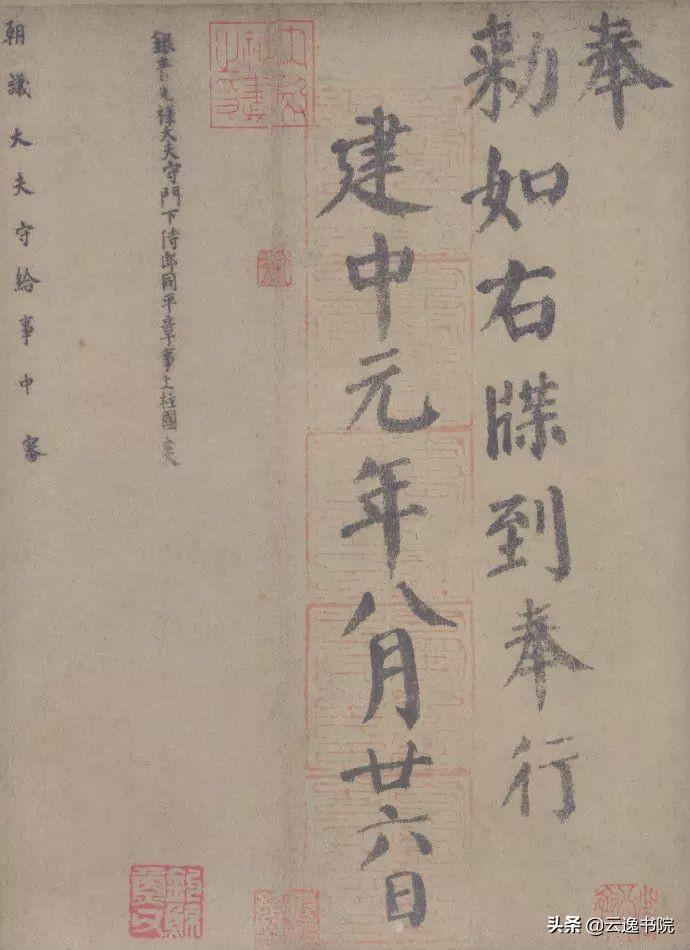 奉
勅如右牒到奉行
建中元年八月廿六日
銀青光祿大夫守門下侍郎同平章事上柱國炎
朝議大夫守給事中審
头条 @云逸书院